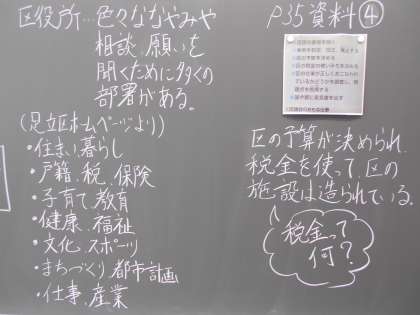 区役所…色々ななやみや
相談、願いを
聞くために多くの
部署がある。
(足立区ホームページより)
・住まい、暮らし
・戸籍、税、保険
・子育て、教育
・健康、福祉
・文化、スポーツ
・まちづくり、都市計画
・仕事、産業
P35 資料④
区の予算が決められ、
税金を使って、区の
施設は造られている。
税金って
何?